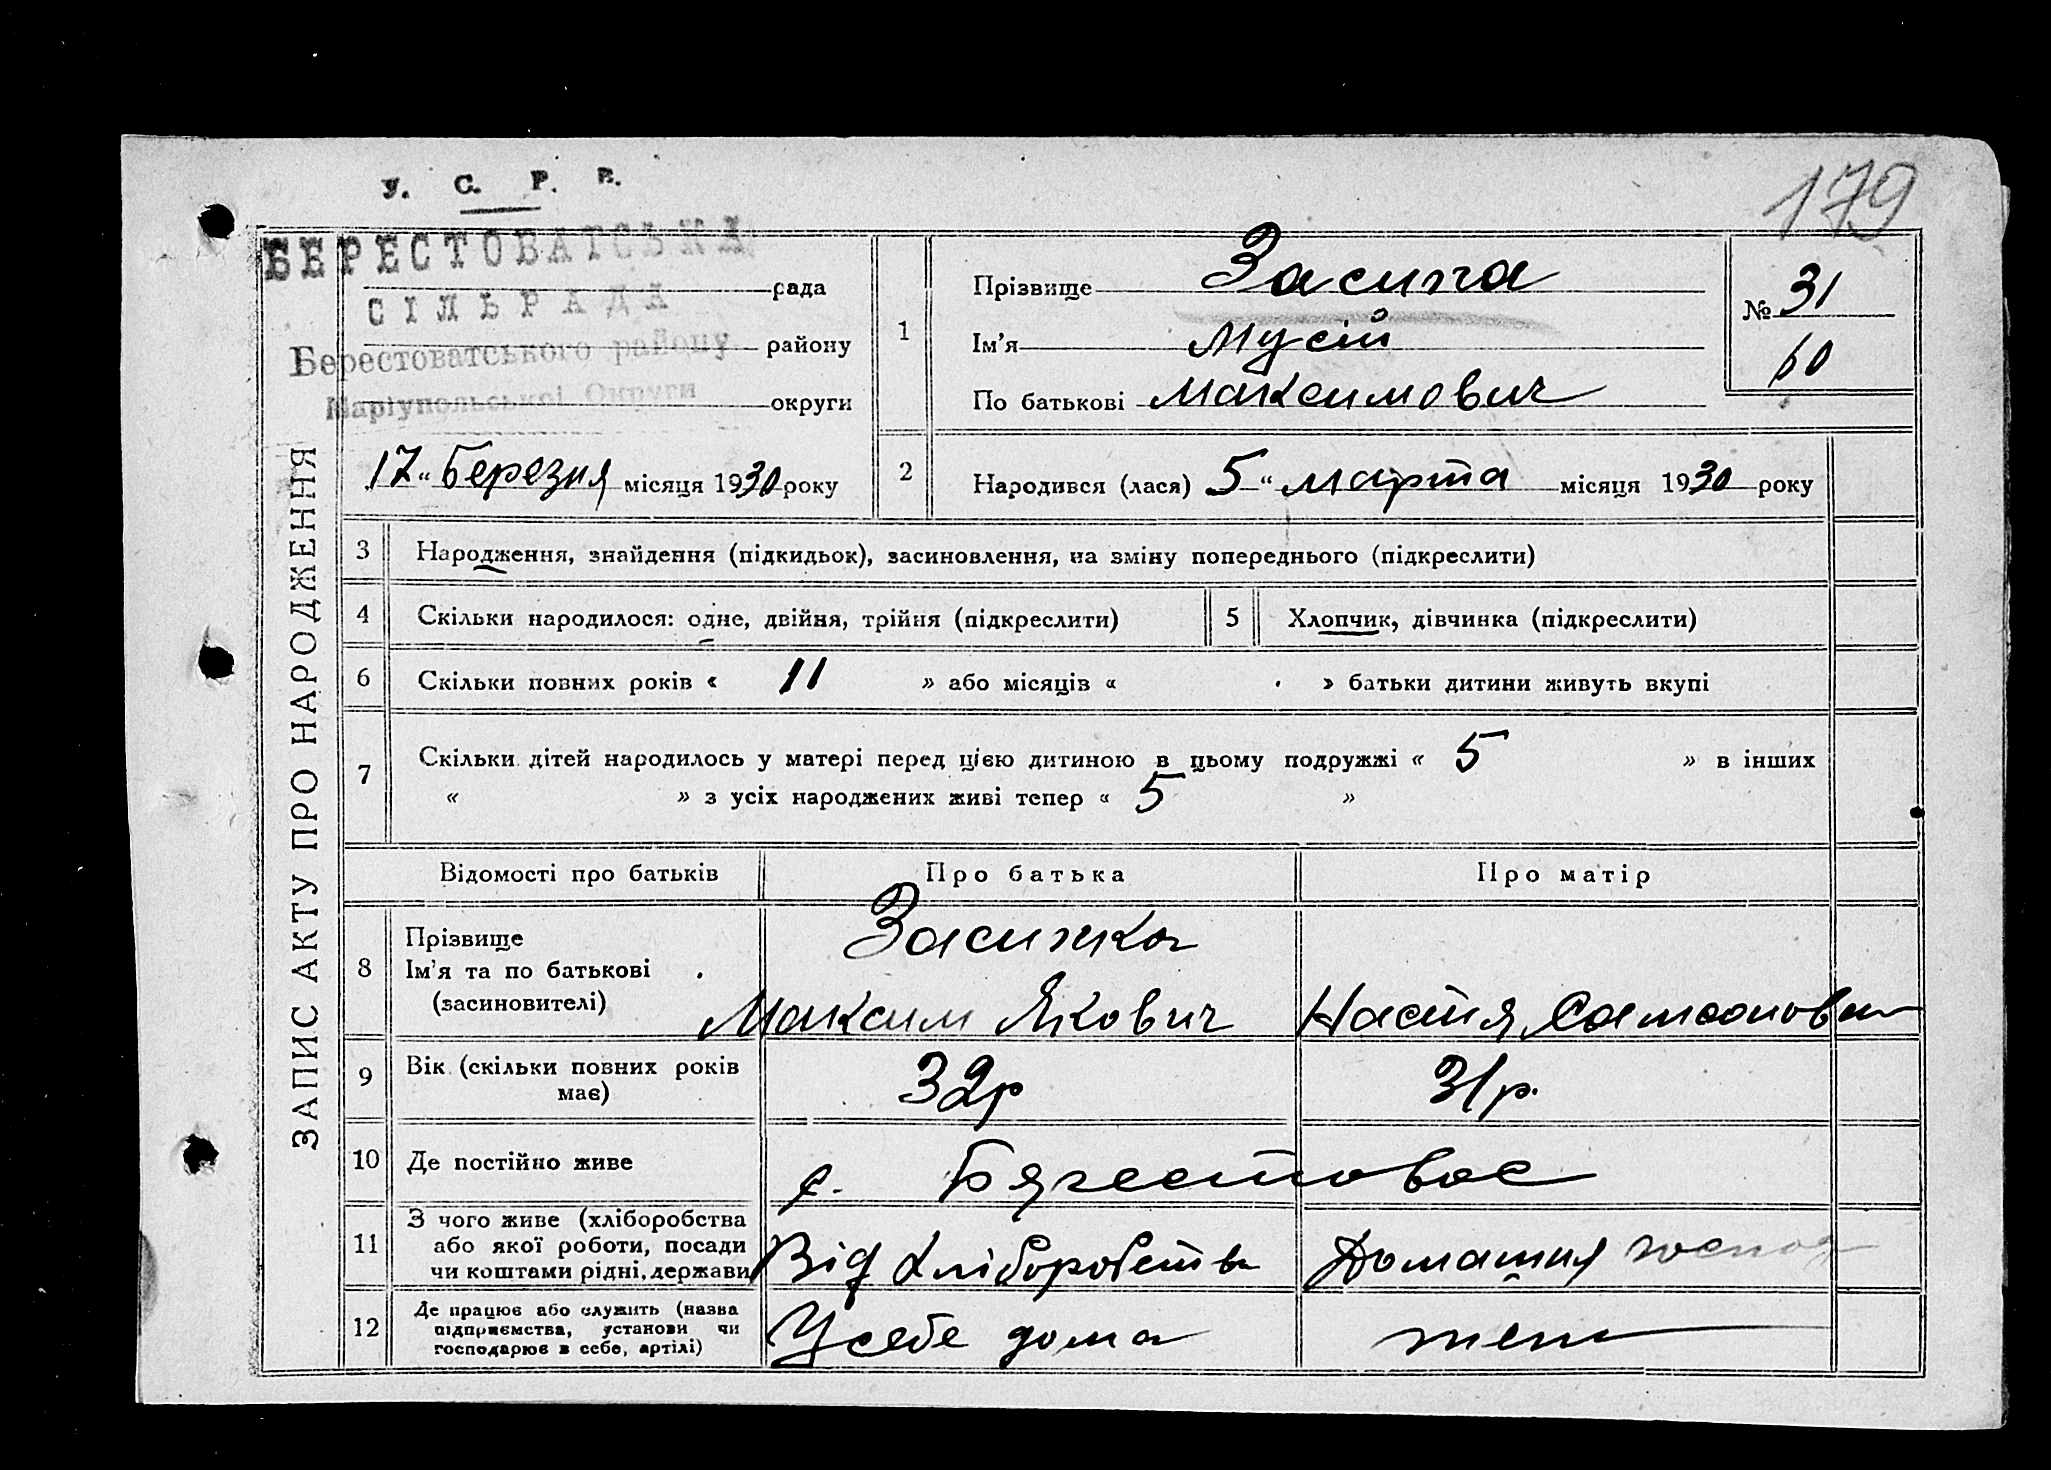 179
У. С. Р. Р.
БЕРЕСТОВАТСЬКА
рада
СІЛЬРАДА
Берестоватського району
району
Маріупольської Округи
округи
17 „ березня місяця 1930 року
ЗАПИС АКТУ ПРО НАРОДЖЕННЯ
1
Прізвище Засипа
Ім'я Мусій
По батькові Максимович
№ 31
60
2
Народився (лася) 5 „ марта місяця 1930 року
3 Народження, знайдення (підкидьок), засиновлення, на зміну попереднього (підкреслити)
4 Скільки народилося: одне, двійня, трійня (підкреслити)
5 Хлопчик, дівчинка (підкреслити)
6 Скільки повних років « 11 » або місяців « » батьки дитини живуть вкупі
7 Скільки дітей народилось у матері перед цією дитиною в цьому подружжі « 5 » в інших
« » з усіх народжених живі тепер « 5 »
Відомості про батьків Про батька Про матір
8 Прізвище
Ім'я та по батькові
(засновителі)
Максим Якович
Настя
9 Вік (скільки повних років
має)
32р
31р.
10 Де постійно живе
с.
11 З чого живе (хліборобства
або якої роботи, посади
чи коштами рідні, держави
Від хліборобства
Домашня
12 Де працює або служить (назва
підприємства, установи чи
господарює в себе, артілі)
У себе дома
теж